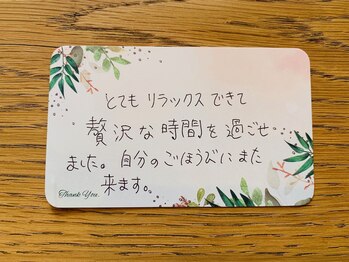 とても リラックス できて
贅沢な時間を過ごせ
ました。自分のごほうびにまた
来ます。
Thank You.